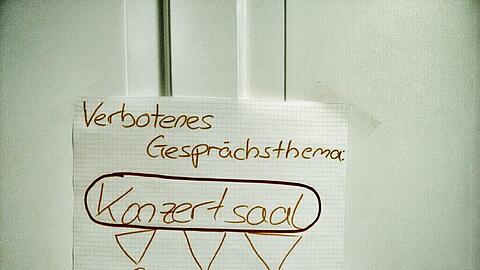 Verbotenes
Gesprächsthema:
Konzertsaal